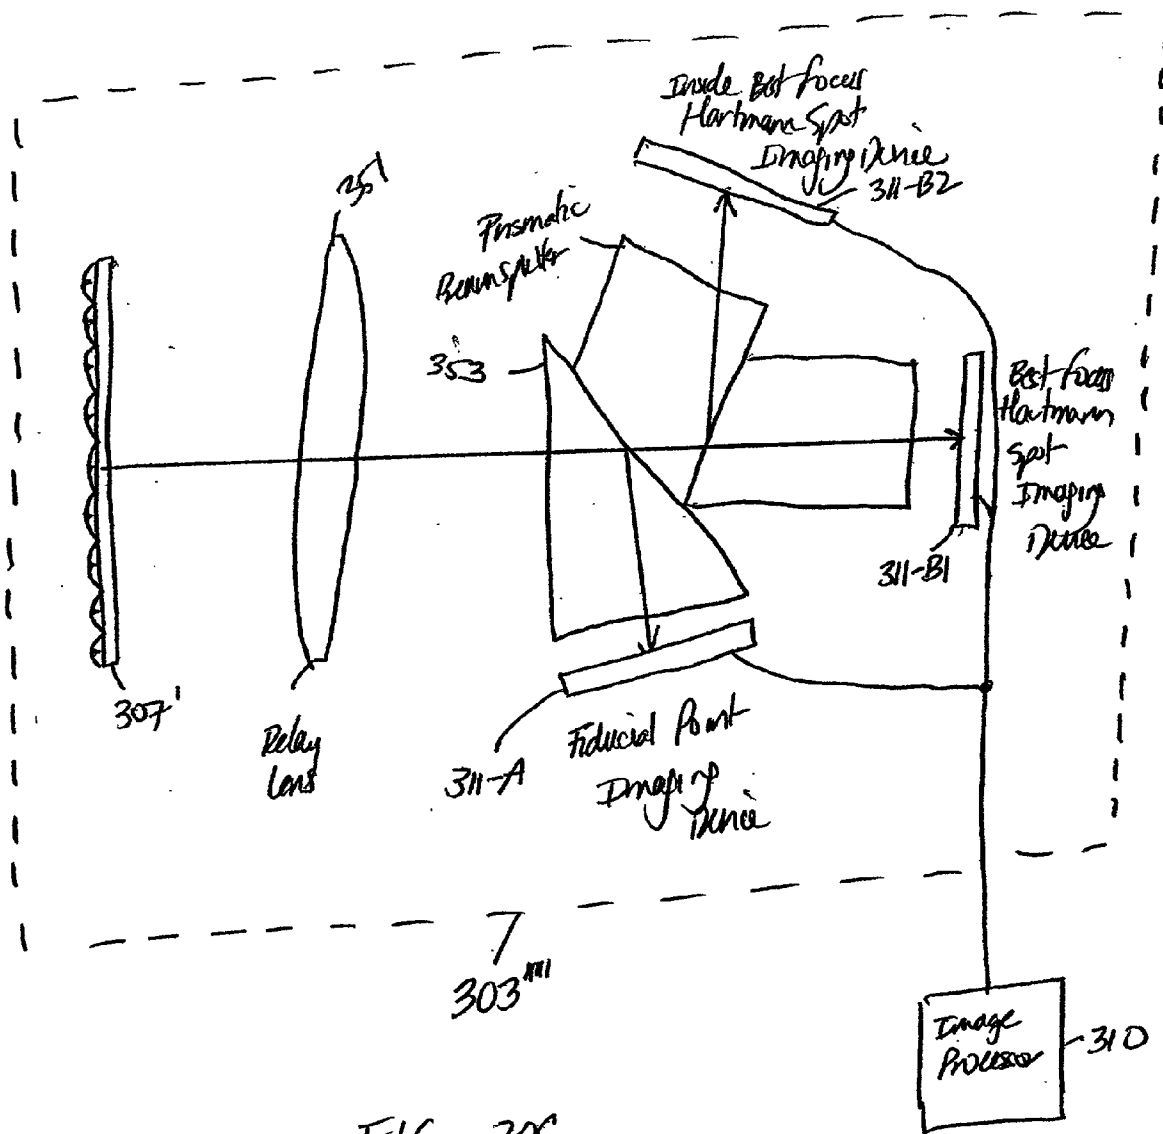 Inside Best-focus
Hartmann Spot
Imaging Device
311-B2
351
Prismatic
Beamsplitter
353
Best-focus
Hartmann
Spot
Imaging
Device
311-B1
307'
Relay
Lens
311-A
Fiducial Point
Imaging
Device
303''''
Image
Processor
310
FIG.